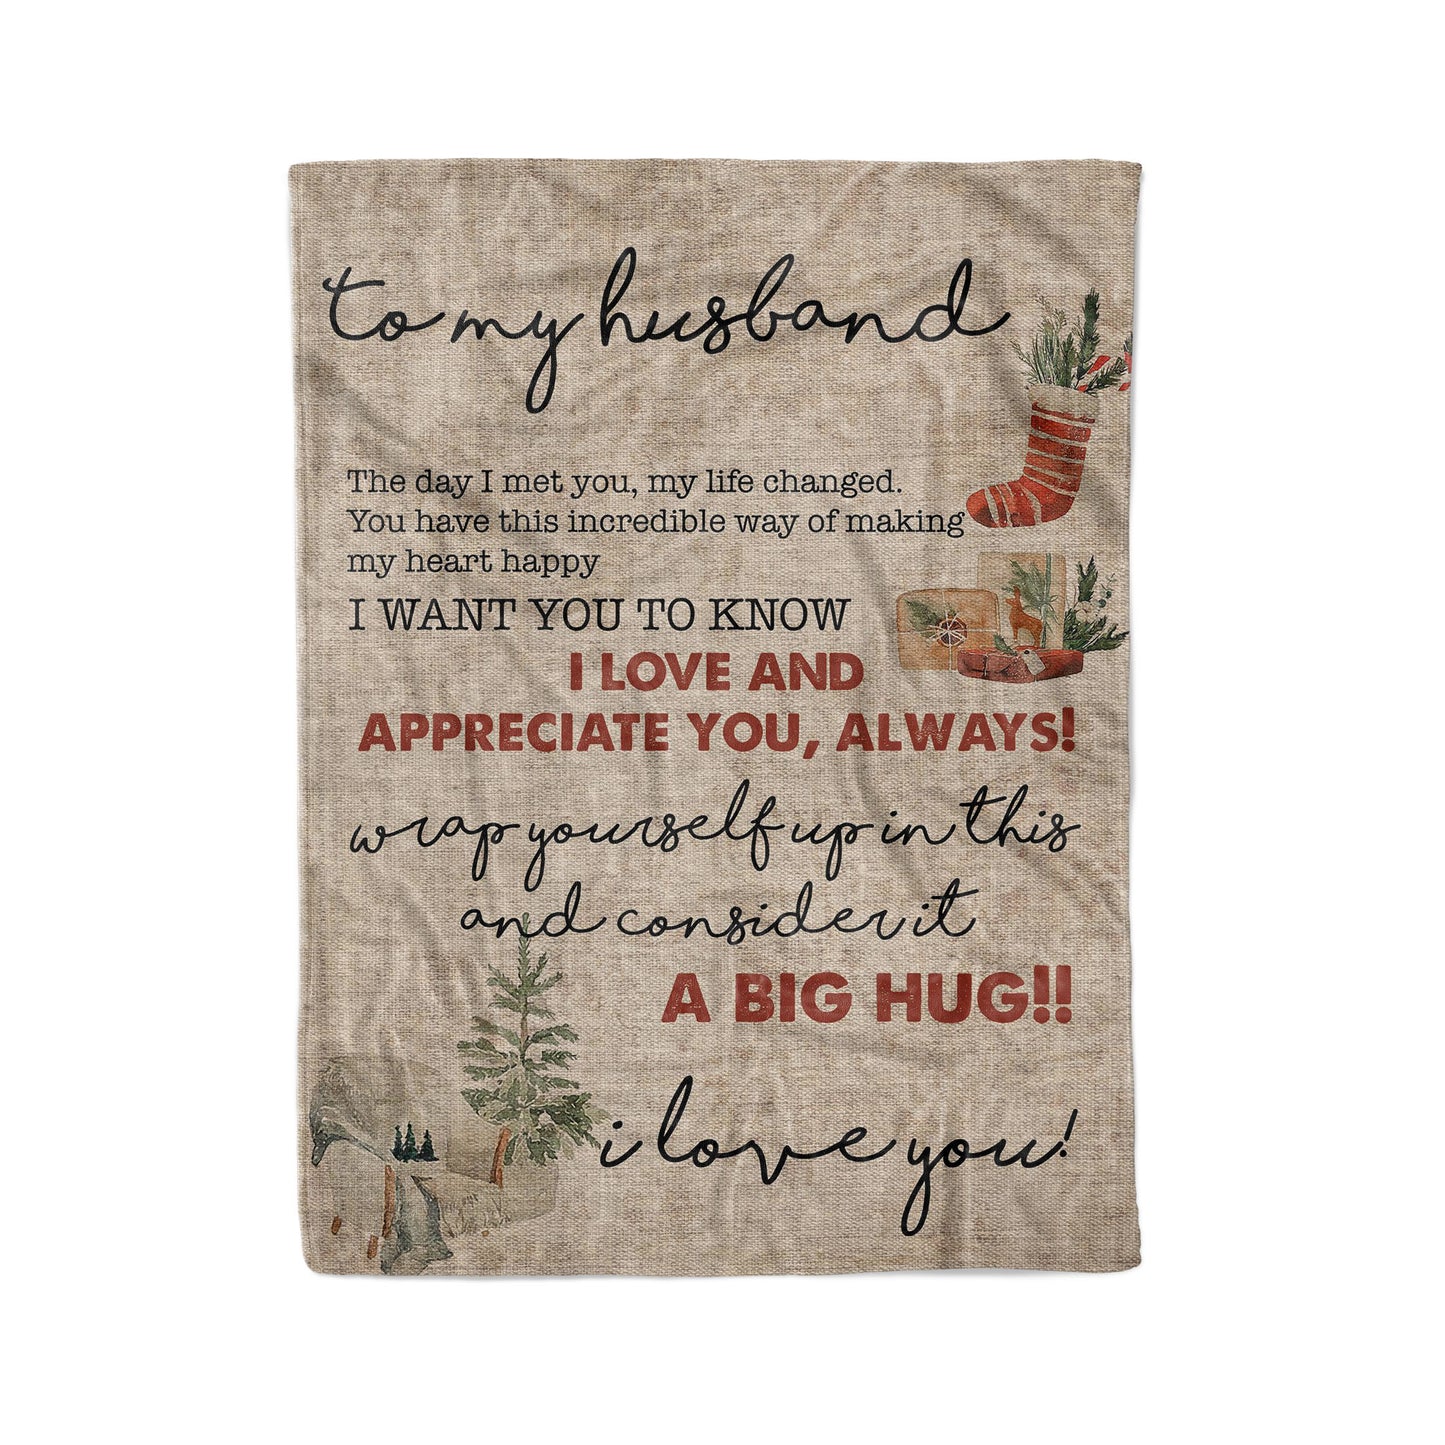 to my husband
The day I met you, my life changed.
You have this incredible way of making
my heart happy
I WANT YOU TO KNOW
I LOVE AND
APPRECIATE YOU, ALWAYS!
wrap yourself up in this
and consider it
A BIG HUG!!
i love you!